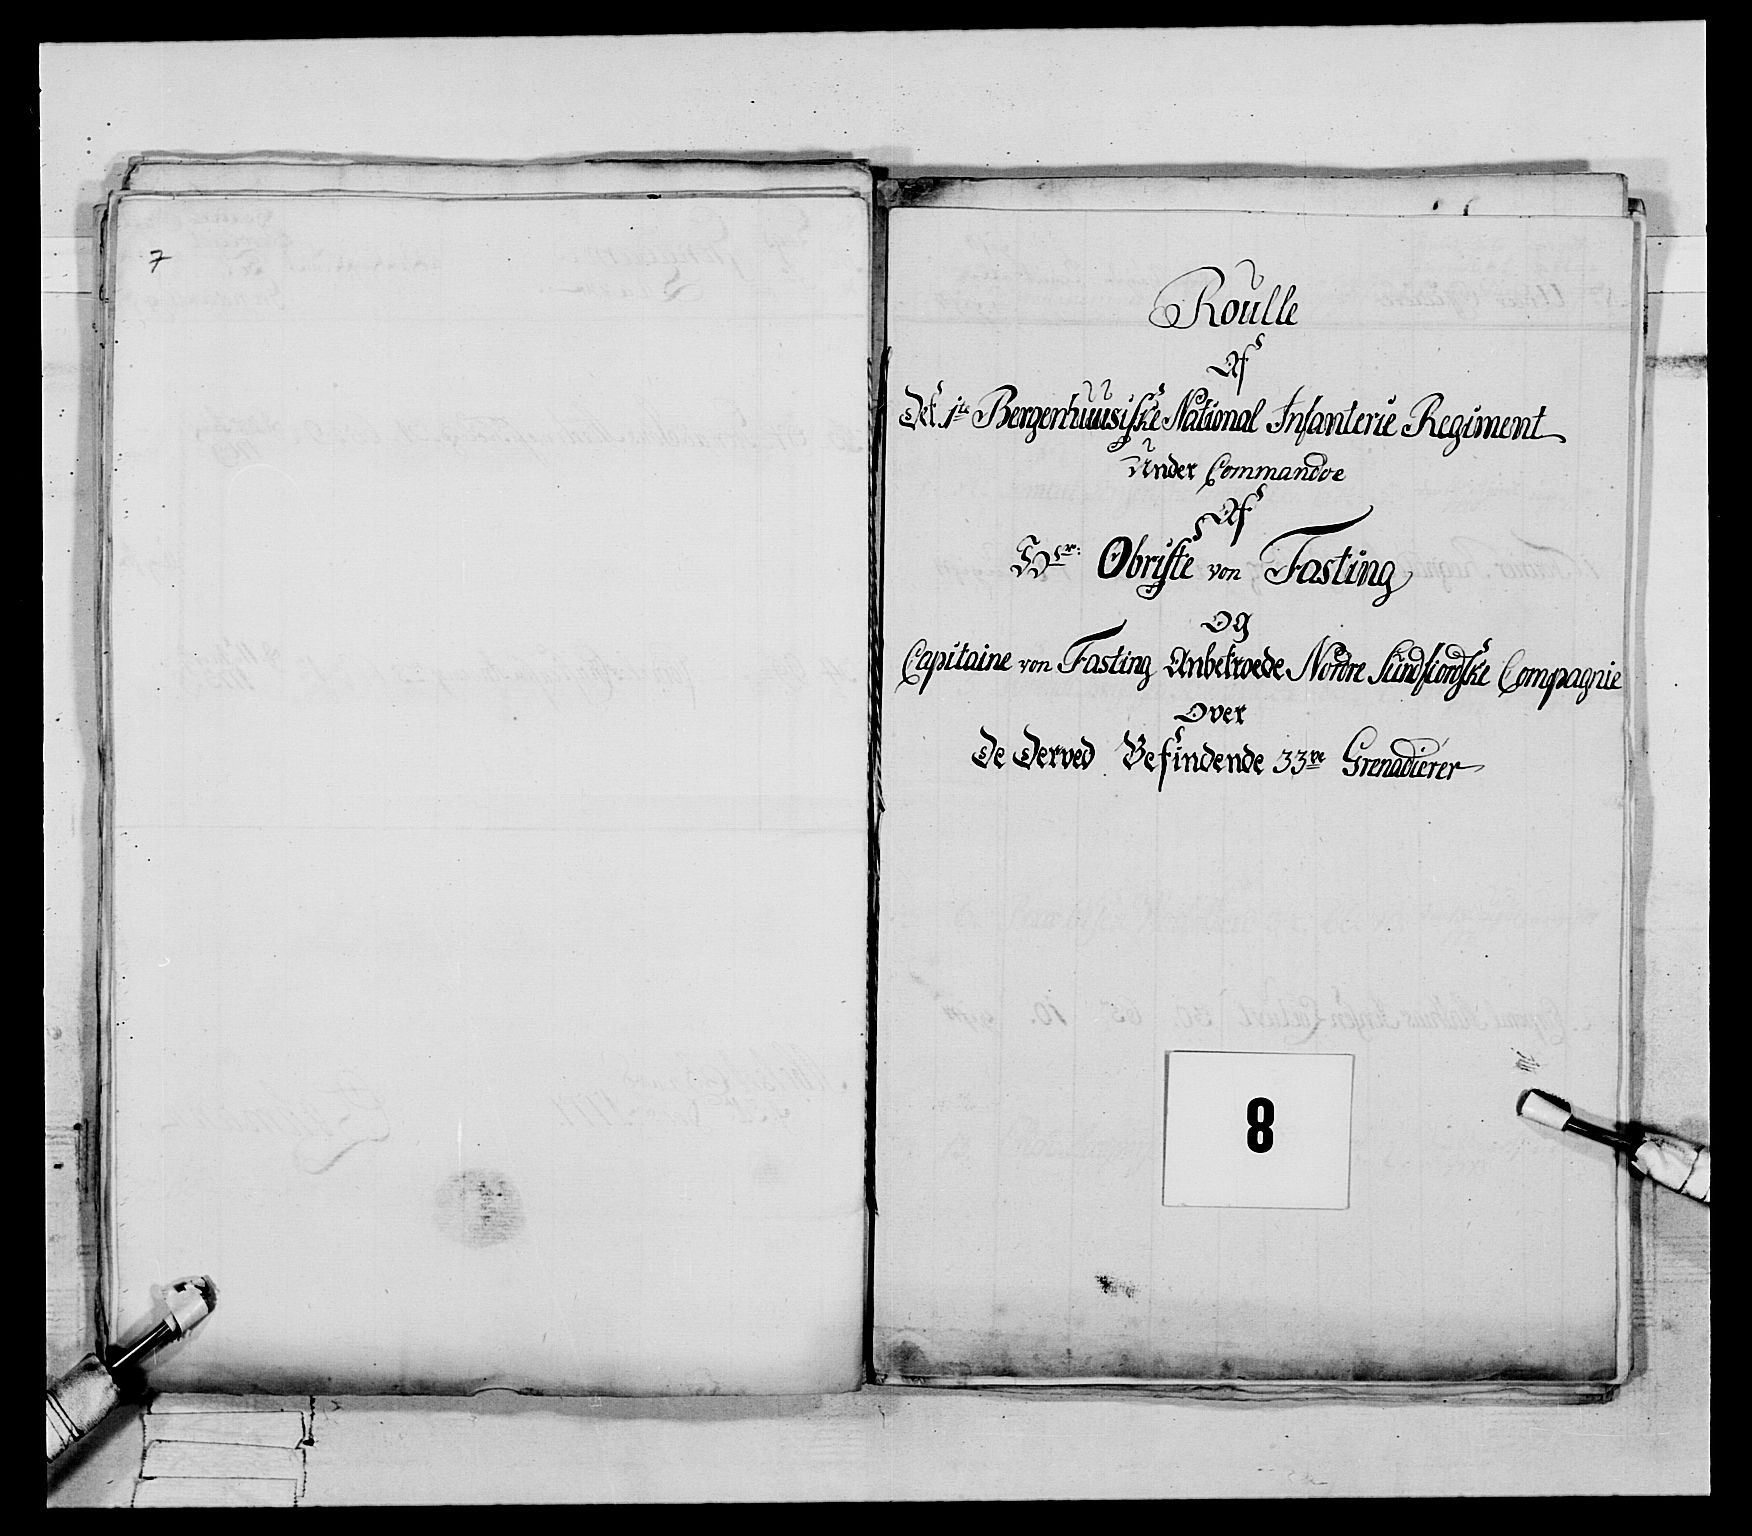 7
Roulle
Af
Det 1te Bergenhuusiske National Infanterie Regiment
Under Commandoe
Af
Hr: Obriste von Fasting
Og
Capitaine von Fasting Anbetroede Nordre Sundfiordske Compagnie
Over
De Derved Befindende 33re Grenadierer
8